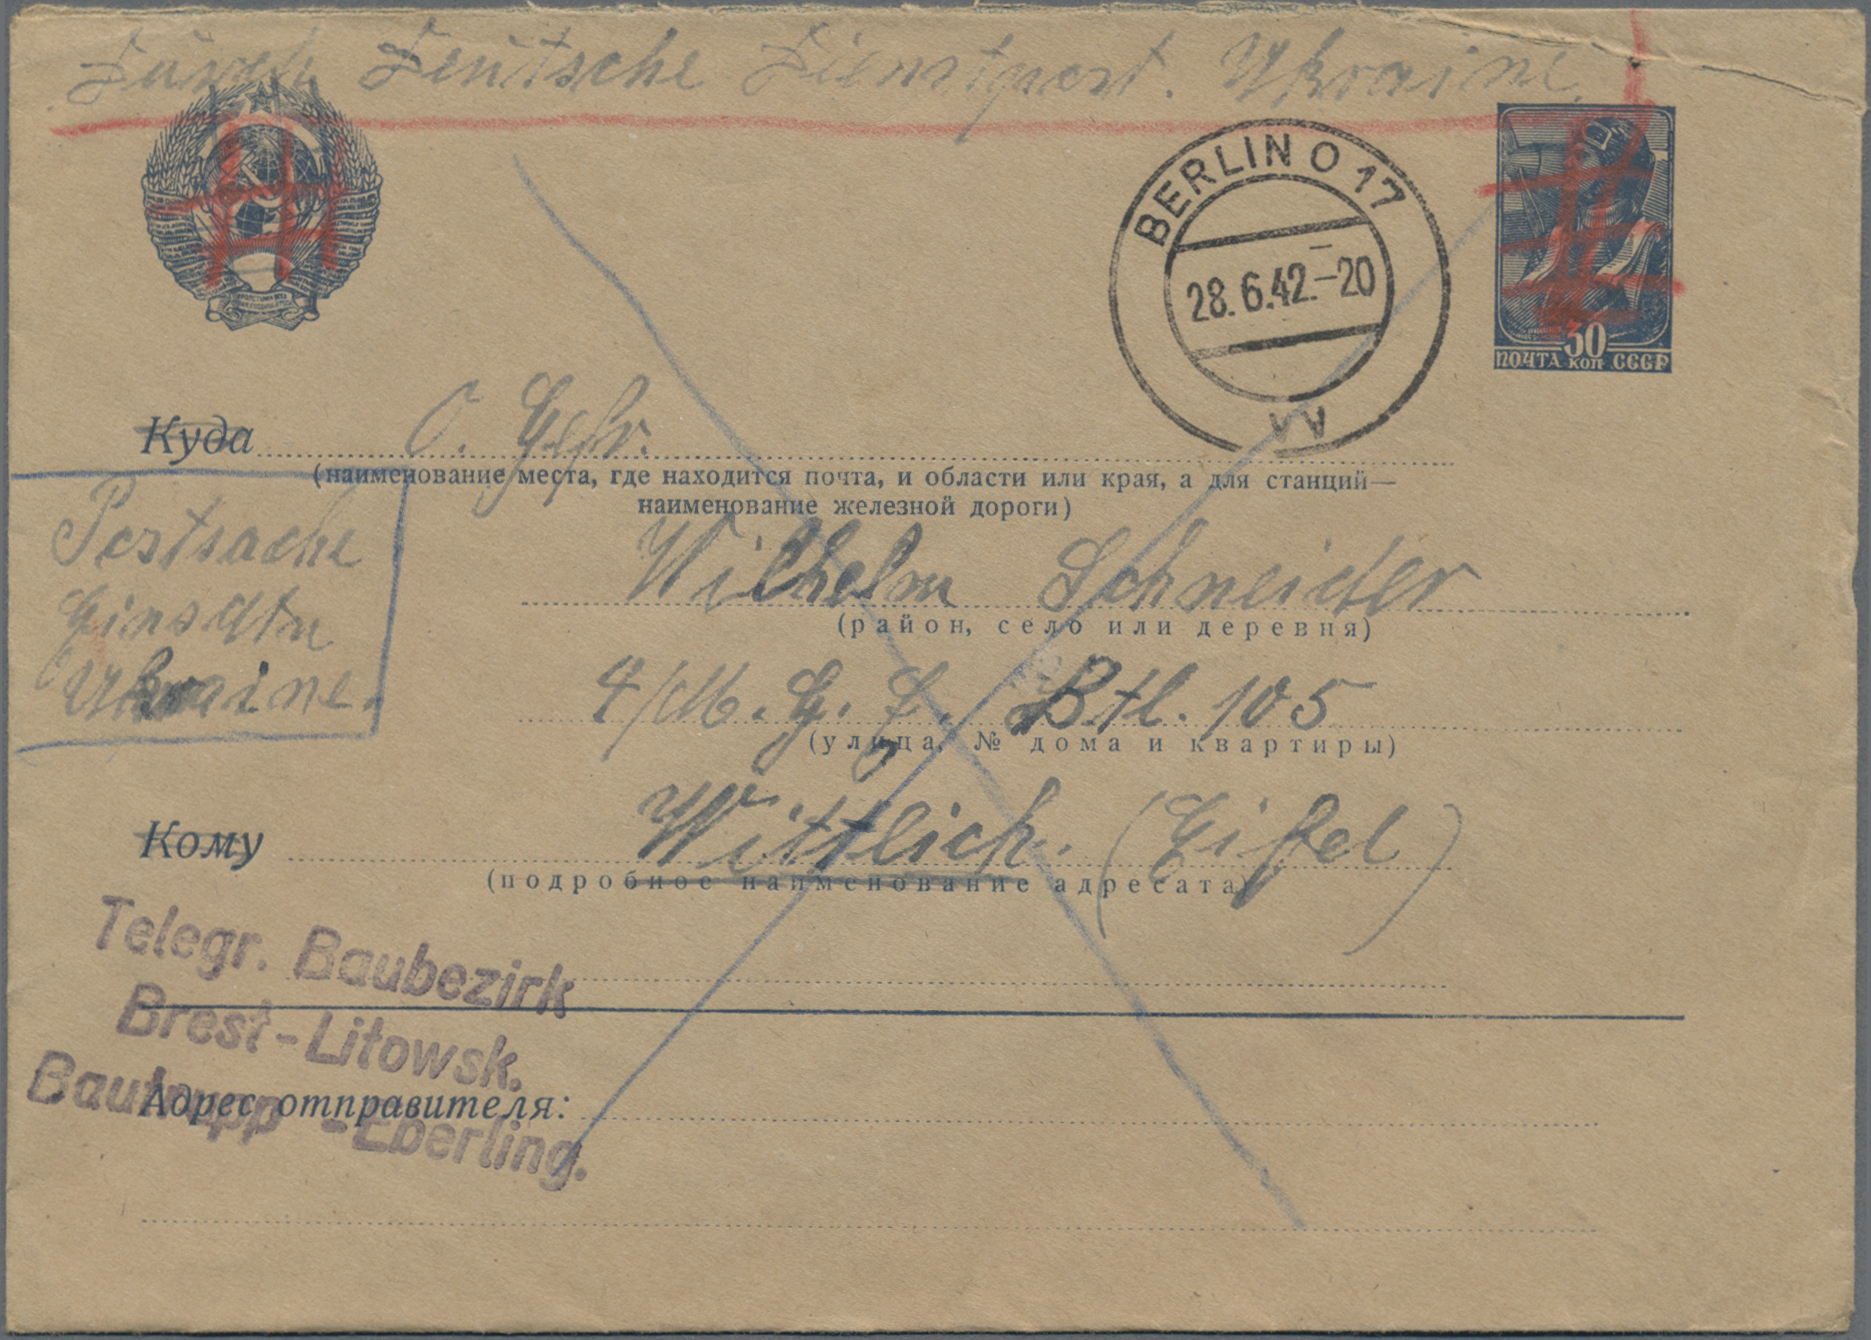 Durch Deutsche Dienstpost. Ukraine.
BERLIN O 17
28.6.42.-20
30
ПОЧТА КОП СССР
Куда O. Gefr.
(наименование места, где находится почта, и области или края, а для станций—
наименование железной дороги)
Postsache
Ukraine.
Wilhelm Schneider
(район, село или деревня)
4/M. G. E. Btl. 105
(улица, № дома и квартиры)
Кому Wittlich. (Eifel)
(подробное наименование адресата)
Telegr. Baubezirk
Brest-Litowsk.
Bautrupp -Eberling.
Адрес отправителя: